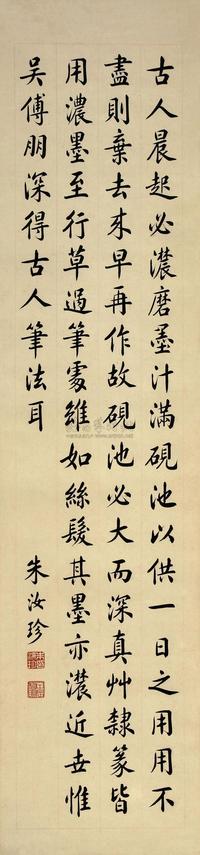 古人晨起必濃磨墨汁滿硯池以供一日之用用不
盡則棄去來早再作故硯池必大而深真艸隸篆皆
用濃墨至行草過筆處雖如絲髮其墨亦濃近世惟
吳傅朋深得古人筆法耳
朱汝珍